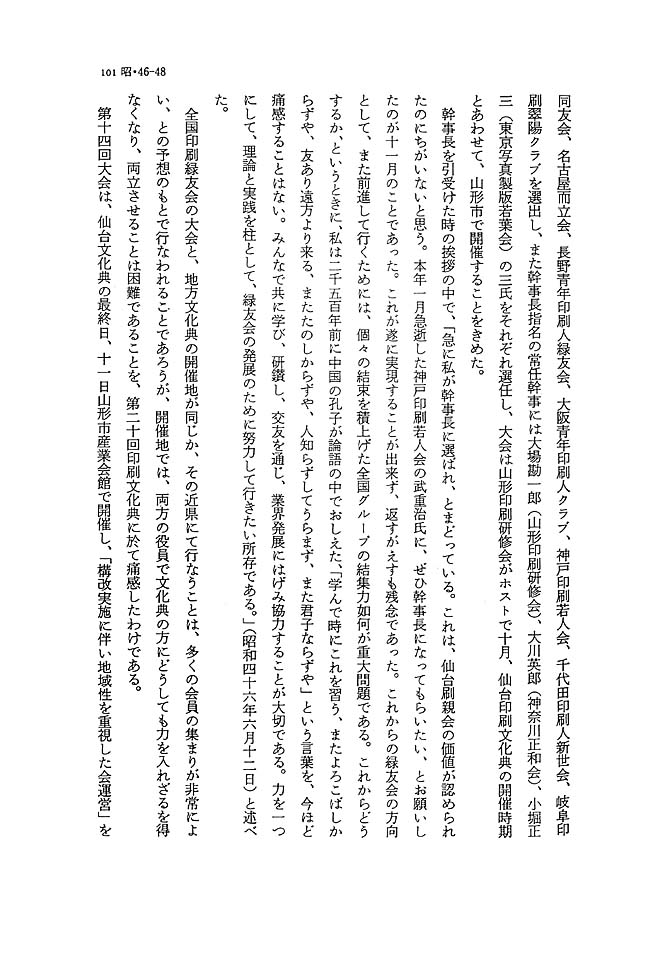 101 昭・46-48
同友会、名古屋而立会、長野青年印刷人緑友会、大阪青年印刷人クラブ、神戸印刷若人会、千代田印刷人新世会、岐阜印
刷翠陽クラブを選出し、また幹事長指名の常任幹事には大場勘一郎（山形印刷研修会）、大川英郎（神奈川正和会）、小堀正
三（東京写真製版若葉会）の三氏をそれぞれ選任し、大会は山形印刷研修会がホストで十月、仙台印刷文化典の開催時期
とあわせて、山形市で開催することをきめた。
幹事長を引受けた時の挨拶の中で、「急に私が幹事長に選ばれ、とまどっている。これは、仙台刷親会の価値が認められ
たのにちがいないと思う。本年一月急逝した神戸印刷若人会の武重治氏に、ぜひ幹事長になってもらいたい、とお願いし
たのが十一月のことであった。これが遂に実現することが出来ず、返すがえすも残念であった。これからの緑友会の方向
として、また前進して行くためには、個々の結束を積上げた全国グループの結集力如何が重大問題である。これからどう
するか、というときに、私は二千五百年前に中国の孔子が論語の中でおしえた、「学んで時にこれを習う、またよろこばしか
らずや、友あり遠方より来る、またたのしからずや、人知らずしてうらまず、また君子ならずや」という言葉を、今ほど
痛感することはない。みんなで共に学び、研鑽し、交友を通じ、業界発展にはげみ協力することが大切である。力を一つ
にして、理論と実践を柱として、緑友会の発展のために努力して行きたい所存である。」（昭和四十六年六月十二日）と述べ
た。
全国印刷緑友会の大会と、地方文化典の開催地が同じか、その近県にて行なうことは、多くの会員の集まりが非常によ
い、との予想のもとで行なわれることであろうが、開催地では、両方の役員で文化典の方にどうしても力を入れざるを得
なくなり、両立させることは困難であることを、第二十回印刷文化典に於て痛感したわけである。
第十四回大会は、仙台文化典の最終日、十一日山形市産業会館で開催し、「構改実施に伴い地域性を重視した会運営」を